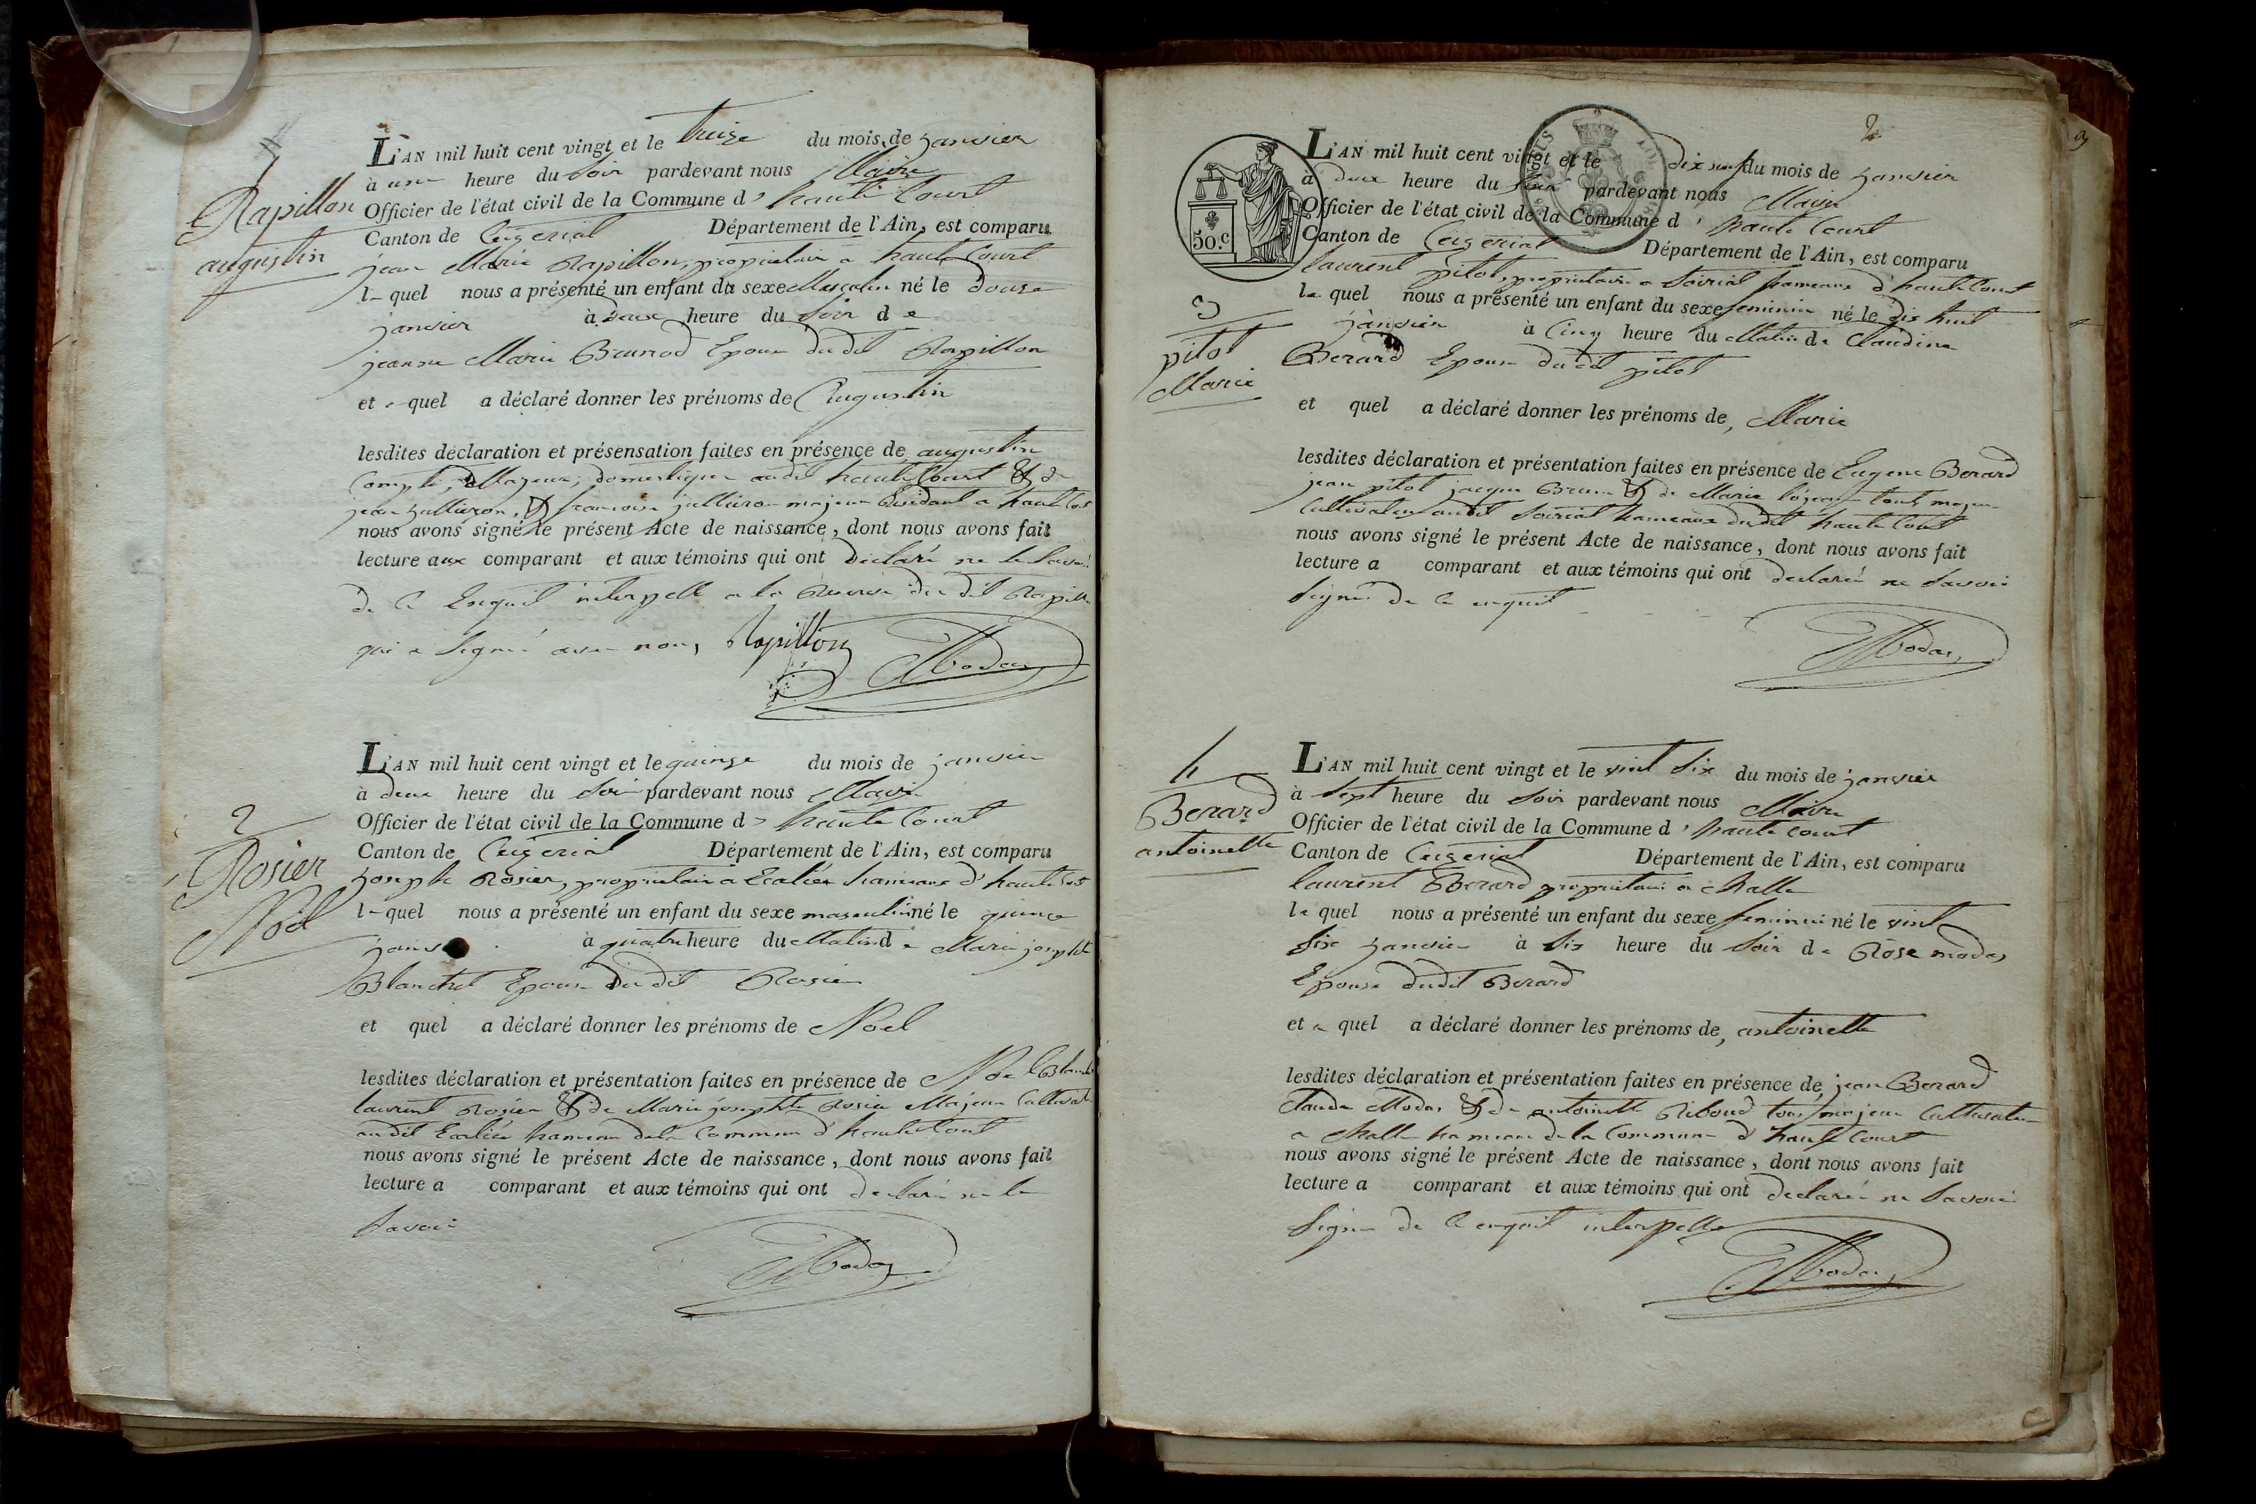 1
Rapillon
augustin
L'AN mil huit cent vingt et le treize du mois de janvier
à une heure du Soir pardevant nous Maire
Officier de l'état civil de la Commune d'haute Court
Canton de Ceizeriat Département de l'Ain, est comparu
jean Marie Rapillon, proprietaire a haute Court
le quel nous a présenté un enfant du sexe Masculin né le douze
janvier à deux heure du Soir de
jeanne Marie Brunod Epouse du dit Rapillon
et le quel a déclaré donner les prénoms de Augustin
lesdites déclaration et présensation faites en présence de augustin
Majeur, domestique audit haute Court & de
majeur Residant a haute Court
nous avons signé le présent Acte de naissance, dont nous avons fait
lecture aux comparant et aux témoins qui ont déclaré ne le Savoir
de ce Enquit interpellé a la Reserve du dit Rapillon
qui a Signé avec nous Rapillon
Modas
2
Rosier
Noël
L'AN mil huit cent vingt et le quinze du mois de janvier
à deux heure du Soir pardevant nous Maire
Officier de l'état civil de la Commune d'haute Court
Canton de Ceizeriat Département de l'Ain, est comparu
joseph Rosier, proprietaire a hameaux d'haute Court
le quel nous a présenté un enfant du sexe masculin né le quince
janv à quatre heure du Matin de Marie josephte
Blanchet Epouse du dit Rosier
et quel a déclaré donner les prénoms de Noel
lesdites déclaration et présentation faites en présence de Noel
laurent Rosier & de Marie josephte Rosier Majeur
au dit hameau de la Commune d'haute Court
nous avons signé le présent Acte de naissance, dont nous avons fait
lecture a comparant et aux témoins qui ont declaré ne le
Savoir
Modas
2
50.c
3
pitot
Marie
L'AN mil huit cent vingt et le dix neuf du mois de janvier
à deux heure du Soir pardevant nous Maire
Officier de l'état civil de la Commune d'haute Court
Canton de Ceizeriat Département de l'Ain, est comparu
laurent pitot, propriétaire a hameaux d'haute Court
le quel nous a présenté un enfant du sexe feminin né le dix huit
janvier à Cinq heure du Matin de Claudine
Berard Epouse dudit pitot
et quel a déclaré donner les prénoms de, Marie
lesdites déclaration et présentation faites en présence de Eugene Berard
jean pitot & de Marie tous majeur
Cultivateur audit hameaux dudit haute Court
nous avons signé le présent Acte de naissance, dont nous avons fait
lecture a comparant et aux témoins qui ont declaré ne Savoir
Signer de ce enquit
Modas
4
Berard
antoinette
L'AN mil huit cent vingt et le vint Six du mois de janvier
à Sept heure du Soir pardevant nous Maire
Officier de l'état civil de la Commune d'haute Court
Canton de Ceizeriat Département de l'Ain, est comparu
laurent Berard propriétaire a Challe
le quel nous a présenté un enfant du sexe feminin né le vint
Six janvier à Six heure du Soir de Rose modas
Epouse dudit Berard
et le quel a déclaré donner les prénoms de, antoinette
lesdites déclaration et présentation faites en présence de, jean Berard
Claude Modas & de antoinette Riboud tous majeur Cultivateur
a Challe hameau de la Commune d'haute Court
nous avons signé le présent Acte de naissance, dont nous avons fait
lecture a comparant et aux témoins qui ont declaré ne Savoir
Signer de ce enquit interpellé
Modas